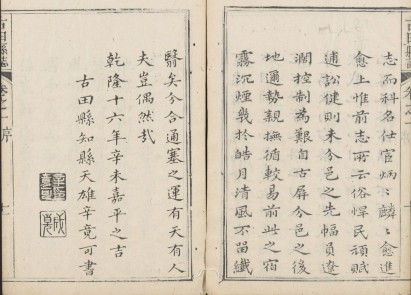 志而科名仕宦炳炳麟麟愈進
愈上惟前志所云俗悍民頑賦
逋訟健則未分邑之先幅員遼
濶控制為難自古屏分邑之後
地邇勢親撫循較易前此之宿
霧沉煙幾於皓月清風不留纖
翳矣分合通塞之運有天有人
夫豈偶然哉
乾隆十六年辛未嘉平之吉
古田縣知縣天雄辛竟可書
古田縣誌
卷之一序
七